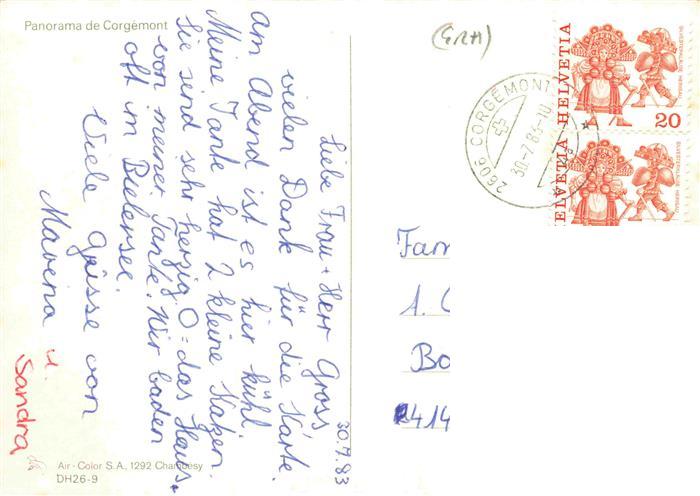 Panorama de Corgémont
30.7.83
Liebe Frau + Herr Gross,
vielen Dank für die Karte.
Am Abend ist es hier kühl.
Meine Tante hat 2 kleine Katzen.
Sie sind sehr herzig. O = das Haus
von meiner Tante. Wir baden
oft im Bielersee.
Viele Grüsse von
Marina u.
Sandra
Air - Color S.A., 1292 Chambésy
DH26-9
(ERH)
2606 CORGÉMONT
30.-7.83-10
HELVETIA
20
SILVESTERKLÄUSE HERISAU
HELVETIA
SILVESTERKLÄUSE HERISAU
Fam
1. C
Bo
414